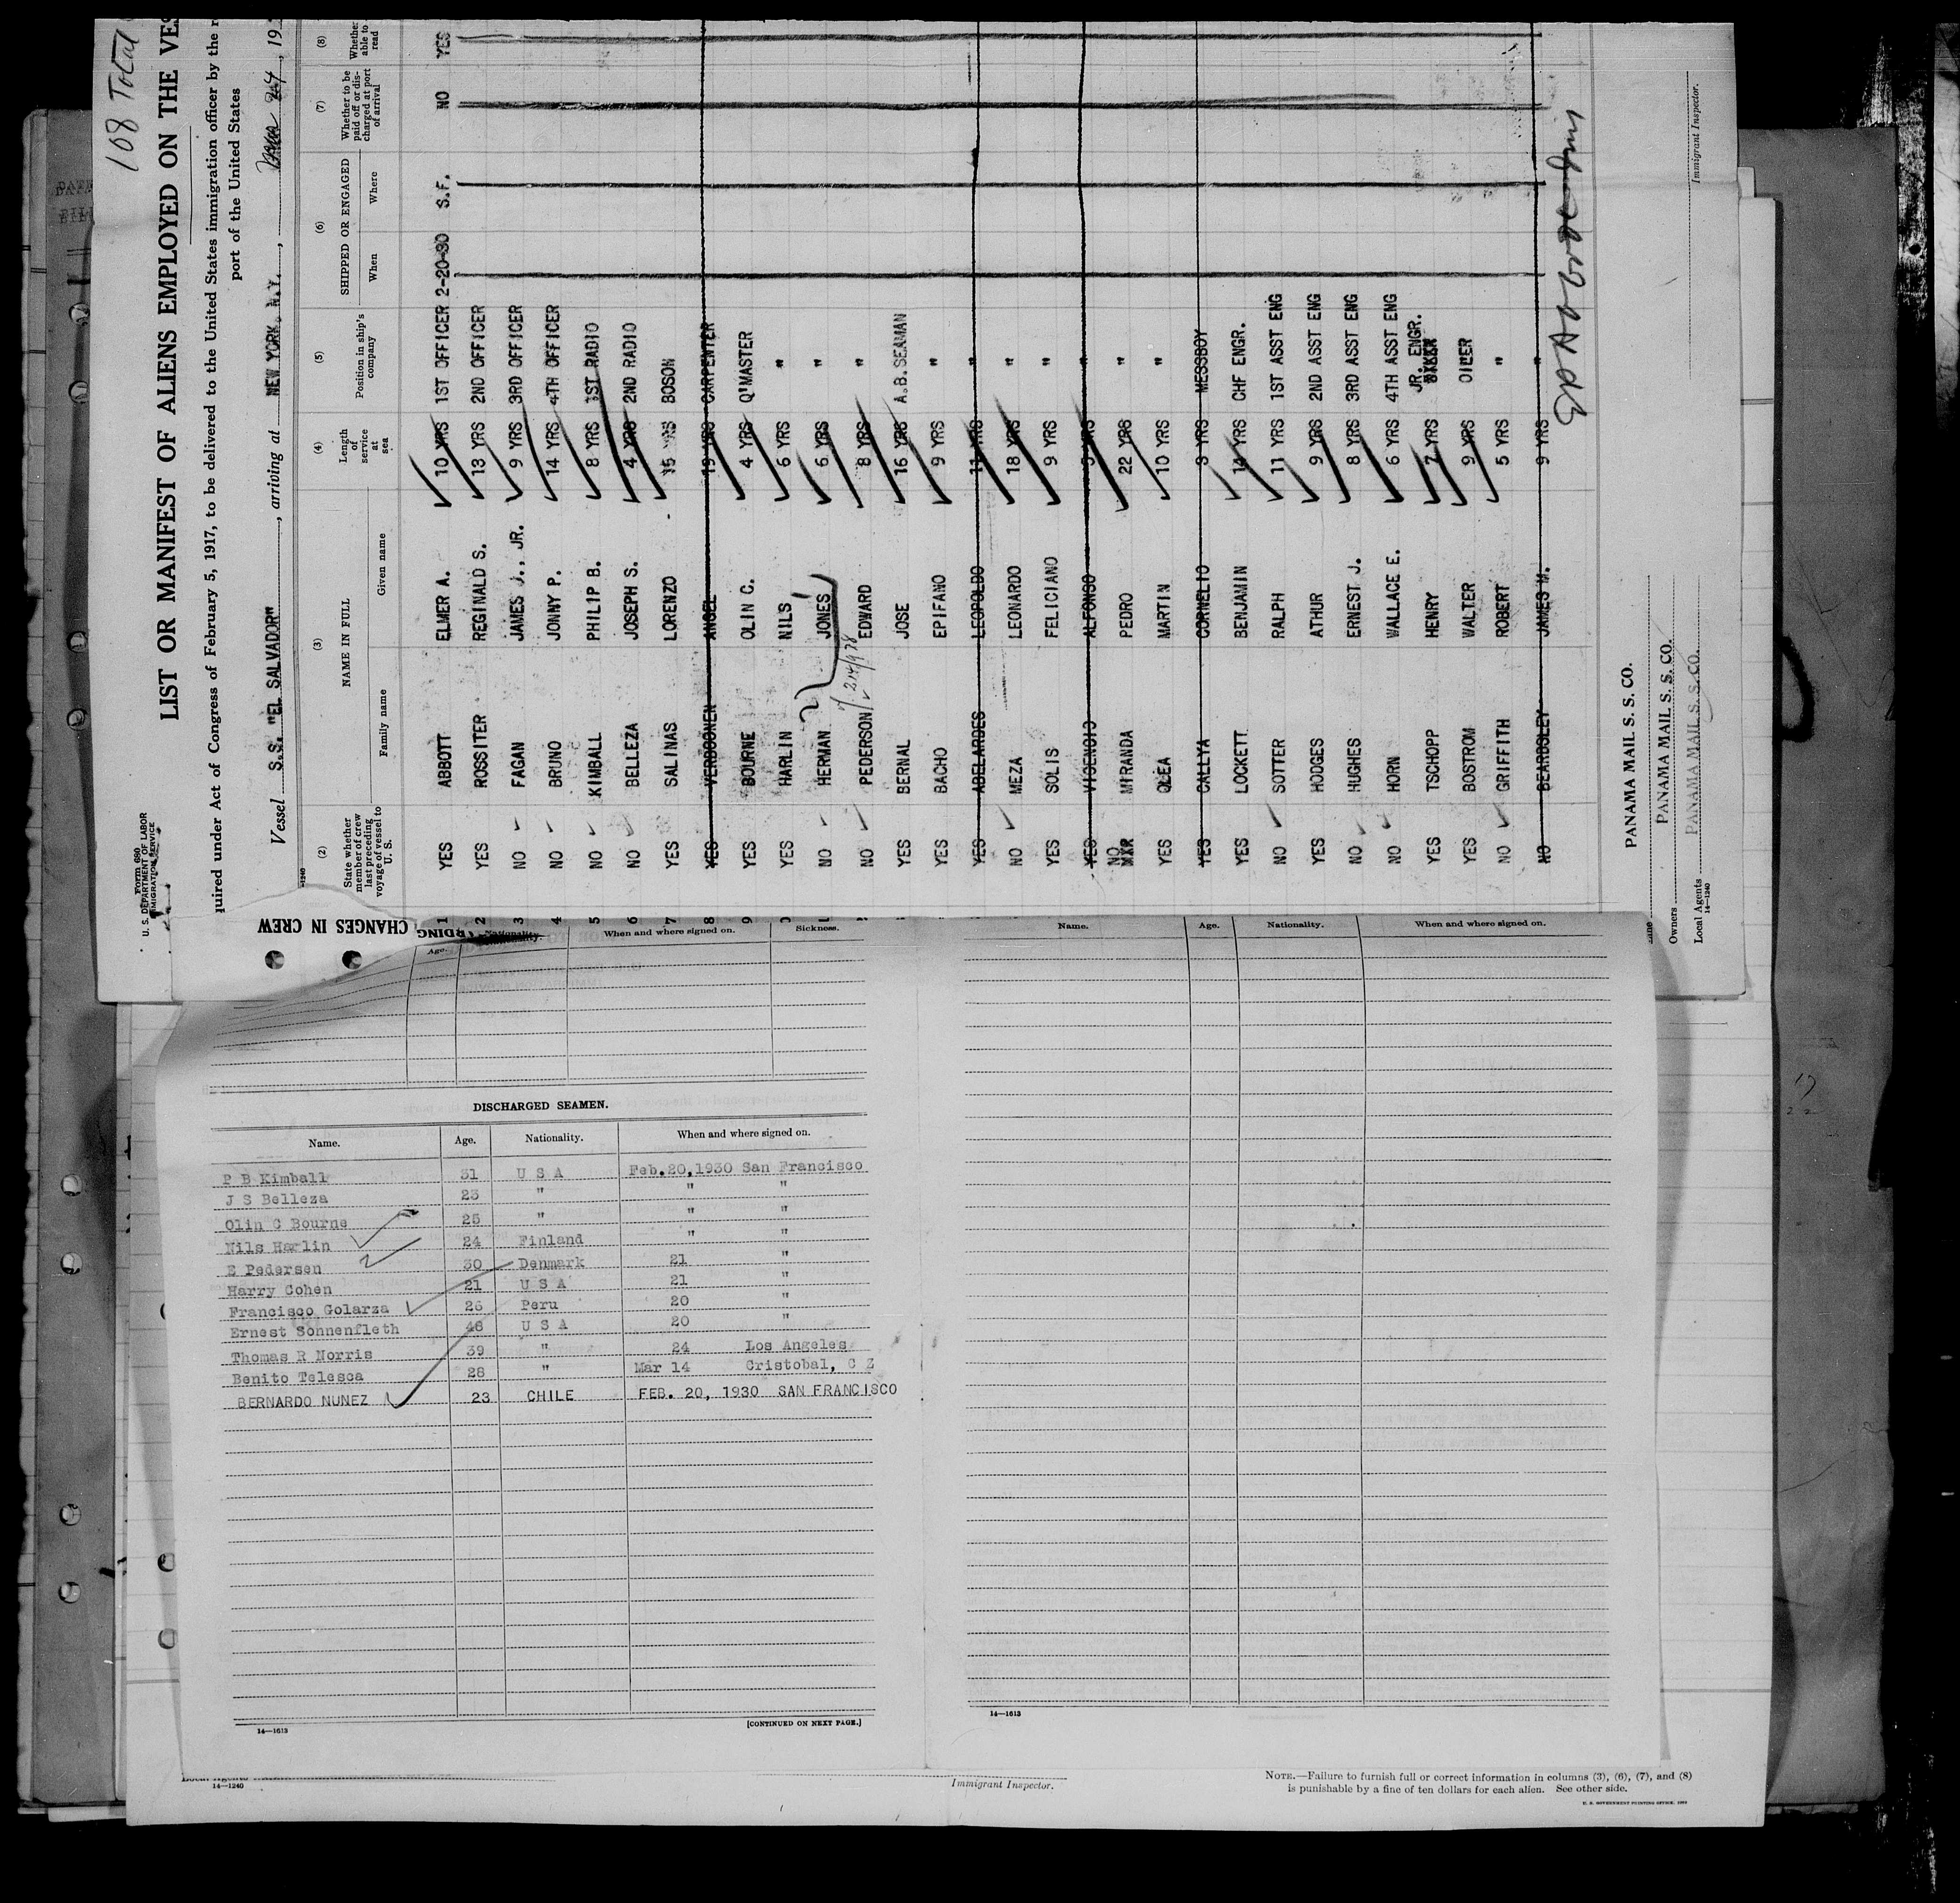 108 Total
Form 680
U. S. DEPARTMENT OF LABOR
IMMIGRATION SERVICE
LIST OR MANIFEST OF ALIENS EMPLOYED ON THE VES
quired under Act of Congress of February 5, 1917, to be delivered to the United States immigration officer by the r
port of the United States
Vessel S.S. "EL SALVADOR", arriving at NEW YORK, N.Y., 24, 19
-1240
(2) (3) (4) (5) (6) (7) (8)
State whether member of crew last preceding voyage of vessel to U. S.
NAME IN FULL
Family name Given name
Length of service at sea
Position in ship's company
SHIPPED OR ENGAGED
When Where
Whether to be paid off or discharged at port of arrival
Whether able to read
1 YES ABBOTT ELMER A. 10 YRS 1ST OFFICER 2-20-30 S.F. NO YES
2 YES ROSSITER REGINALD S. 13 YRS 2ND OFFICER
3 NO FAGAN JAMES J., JR. 9 YRS 3RD OFFICER
4 NO BRUNO JONNY P. 14 YRS 4TH OFFICER
5 NO KIMBALL PHILIP B. 8 YRS 1ST RADIO
6 NO BELLEZA JOSEPH S. 4 YRS 2ND RADIO
7 YES SALINAS LORENZO 15 YRS BOSON
8 YES VERDOONEN ANGEL 19 YRS CARPENTER
9 YES BOURNE OLIN C. 4 YRS Q'MASTER
YES HARLIN NILS 6 YRS "
NO HERMAN JONES 6 YRS "
NO PEDERSON EDWARD 8 YRS "
YES BERNAL JOSE 16 YRS A.B.SEAMAN
YES BACHO EPIFANO 9 YRS "
YES ABELARDES LEOPOLDO 11 YRS "
NO MEZA LEONARDO 18 YRS "
YES SOLIS FELICIANO 9 YRS "
YES ALFONSO YRS "
NO MIRANDA PEDRO 22 YRS "
YES OLEA MARTIN 10 YRS "
YES CALLYA CORNELIO 3 YRS MESSBOY
YES LOCKETT BENJAMIN 14 YRS CHF ENGR.
NO SOTTER RALPH 11 YRS 1ST ASST ENG
YES HODGES ATHUR 9 YRS 2ND ASST ENG
NO HUGHES ERNEST J. 8 YRS 3RD ASST ENG
NO HORN WALLACE E. 6 YRS 4TH ASST ENG
YES TSCHOPP HENRY 7 YRS JR. ENGR.
YES BOSTROM WALTER 9 YRS OILER
NO GRIFFITH ROBERT 5 YRS "
NO BEARDSLEY JAMES M. 9 YRS "
PANAMA MAIL S. S. CO.
Owners PANAMA MAIL S. S. CO.
Local Agents PANAMA MAIL S. S. CO.
14-1240
Immigrant Inspector.
CHANGES IN CREW
Age. Nationality. When and where signed on. Sickness.
Name. Age. Nationality. When and where signed on.
DISCHARGED SEAMEN.
Name. Age. Nationality. When and where signed on.
P B Kimball 31 U S A Feb.20,1930 San Francisco
J S Belleza 23 " " "
Olin C Bourne 25 " " "
Nils Harlin 24 Finland " "
E Pedersen 30 Denmark 21 "
Harry Cohen 21 U S A 21 "
Francisco Golarza 26 Peru 20 "
Ernest Sonnenfleth 46 U S A 20 "
Thomas R Norris 39 " 24 Los Angeles
Benito Telesca 28 " Mar 14 Cristobal, C Z
BERNARDO NUNEZ 23 CHILE FEB. 20, 1930 SAN FRANCISCO
14—1613
[CONTINUED ON NEXT PAGE.]
14—1613
14—1240
Immigrant Inspector.
NOTE.—Failure to furnish full or correct information in columns (3), (6), (7), and (8)
is punishable by a fine of ten dollars for each alien. See other side.
U. S. GOVERNMENT PRINTING OFFICE